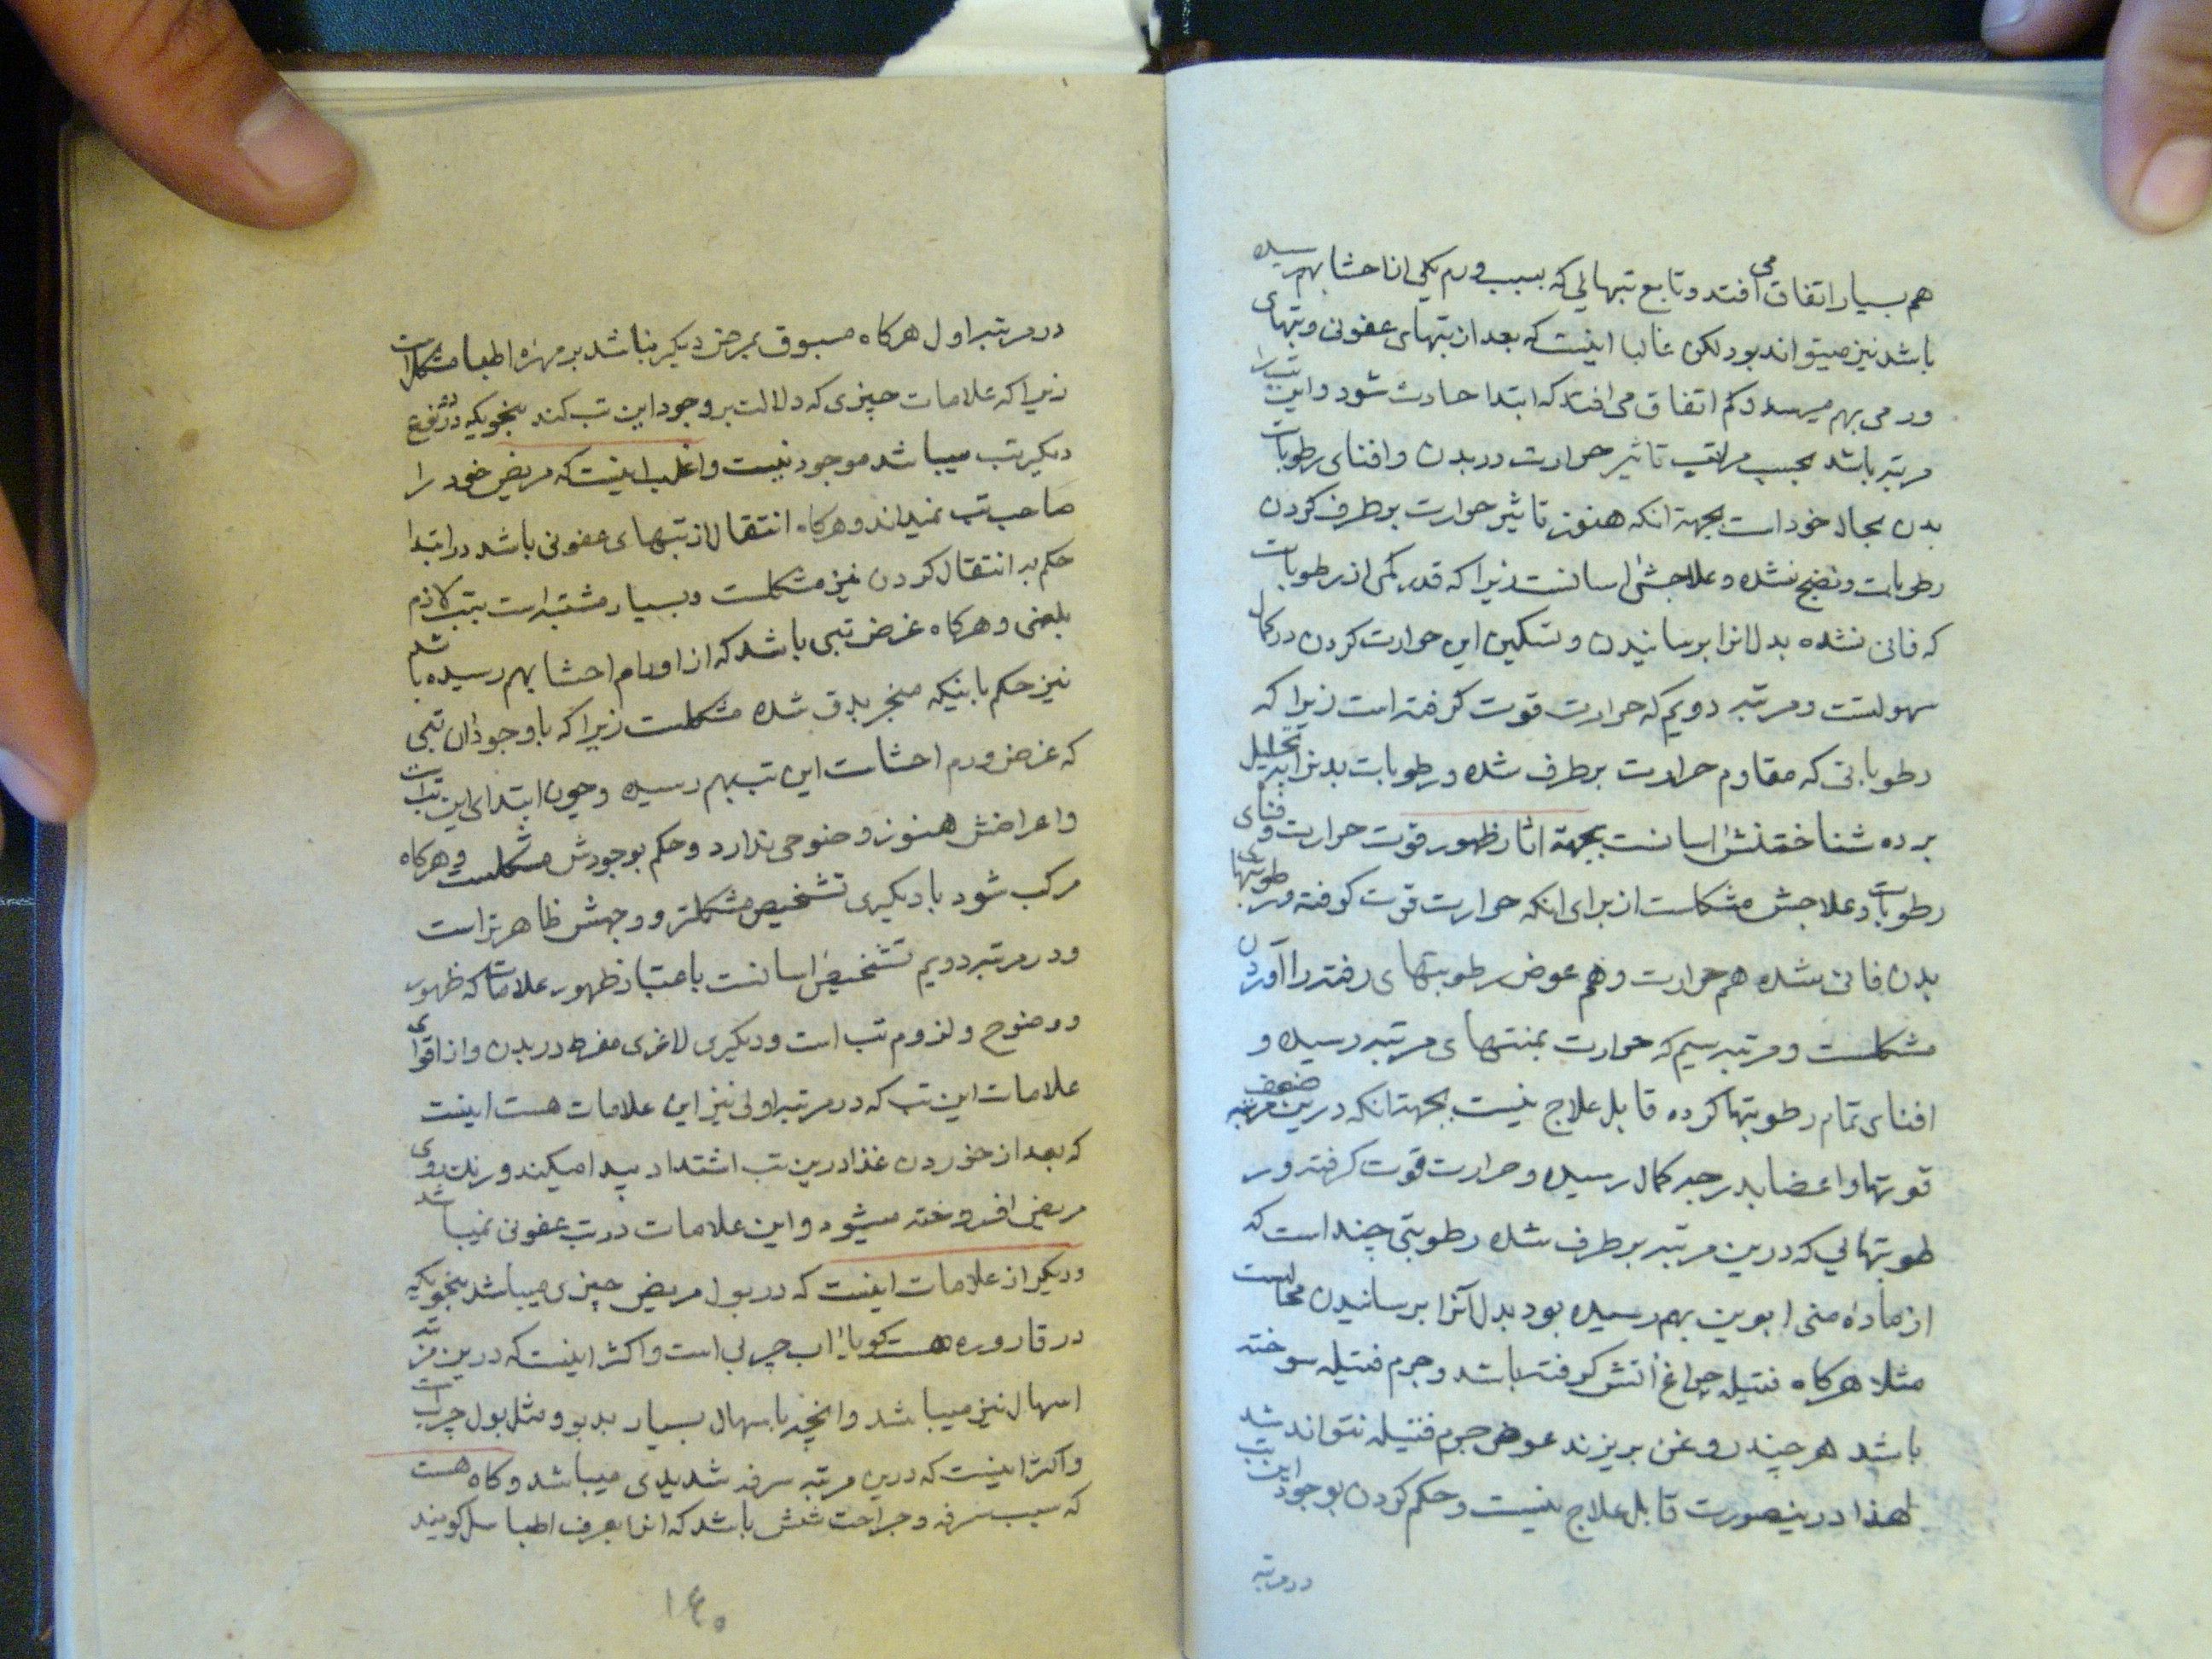 هم بسیار اتفاق می افتد و تابع تبهائی که بسبب ورم یکی از احشا بهم رسیده
باشد نیز میتواند بود لکن غالبا اینست که بعد از تبهای عفونی و تبهای
ورمی بهم میرسد و کم اتفاق می افتد که ابتدا حادث شود و این تب را
مرتبه باشد بحسب مراتب تاثیر حرارت در بدن و افنای رطوبات
بدن بحال خود است بجهة انکه هنوز تاثیر حرارت برطرف کردن
رطوبات و نضج نشده و علاجش اسانست زیرا که قدر کمی از رطوبات
که فانی نشده بدل انرا برسانیدن و تسکین این حرارت کردن در کمال
سهولتست و مرتبه دویم که حرارت قوت گرفته است زیرا که
رطوباتی که مقاوم حرارت برطرف شده و رطوبات بدنرا بتحلیل
برده شناختنش اسانست بجهة اثار ظهور قوت حرارت و فنای
رطوبات و علاجش مشکلست از برای انکه حرارت قوت گرفته و رطوبتهای
بدن فانی شده هم حرارت و هم عوض رطوبتهای رفته را آوردن
مشکلست و مرتبه سیم که حرارت بمنتهای مرتبه رسیده و
افنای تمام رطوبتها کرده قابل علاج نیست بجهة انکه درین مرتبه ضعف
قوتها و اعضا بدرجه کمال رسیده و حرارت قوت گرفته و ر
طوبتهائی که درین مرتبه برطرف شده رطوبتی چند است که
از مادۀ منی ابوین بهم رسیده بود بدل آنرا برسانیدن محالست
مثلا هرکاه فتیله چراغ اتش گرفته باشد و جرم فتیله سوخته
باشد هر چند روغن بریزند عوض جرم فتیله نتواند شد
لهذا درینصورت قابل علاج نیست و حکم کردن بوجود این تب
در مرتبه
در مرتبه اول هرکاه مسبوق بمرض دیکر نباشد بر مهره اطبا مشکل است
زیرا که علامات چیزی که دلالت بر وجود این تب کند بنحویکه در
دیکر تب میباشد موجود نیست و اغلب اینست که مریض خود را
صاحب تب نمیداند و هرکاه انتقال از تبهای عفونی باشد در ابتدا
حکم به انتقال کردن نیز مشکلست و بسیار مشتبه است بتب لازم
بلغمی و هرکاه عرض تبی باشد که از اورام احشا بهم رسیده باشد
نیز حکم باینکه منجر بدق شده مشکلست زیرا که با وجود ان تبی
که عرض ورم احشاست این تب بهم رسیده و چون ابتدای این تب است
و اعراضش هنوز وضوحی ندارد و حکم بوجودش مشکلست و هرکاه
مرکب شود با دیکری تشخیص مشکلتر و وجهش ظاهرتر است
و در مرتبه دویم تشخیص اسانست باعتبار ظهور علامات که ظهور
و وضوح و لزوم تب است و دیکری لاغری مفرط در بدن و از اقوای
علامات این تب که در مرتبه اولی نیز این علامات هست اینست
که بعد از خوردن غذا درین تب اشتداد پیدا میکند و رنک روی
مریض افروخته میشود و این علامات در تب عفونی نمیباشد
و دیکر از علامات اینست که در بول مریض چیزی میباشد بنحویکه
در قاروره هست کویا اب چربی است و اکثر اینست که درین مرتبه
اسهال نیز میباشد و انچه باسهال بسیار بدبو و مثل بول چرب است
و اکثر اینست که درین مرتبه سرفه شدیدی میباشد و کاه هست
که سبب سرفه و جراحت شش باشد که انرا بعرف اطبا سل کویند